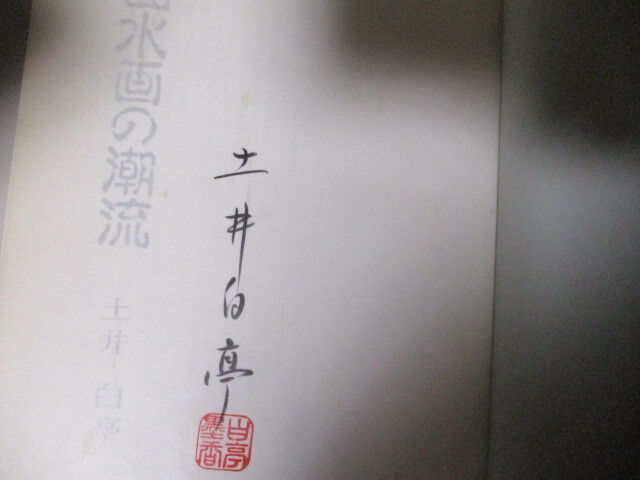 土井白亭
白亭
墨香
山水画の潮流
土井白亭